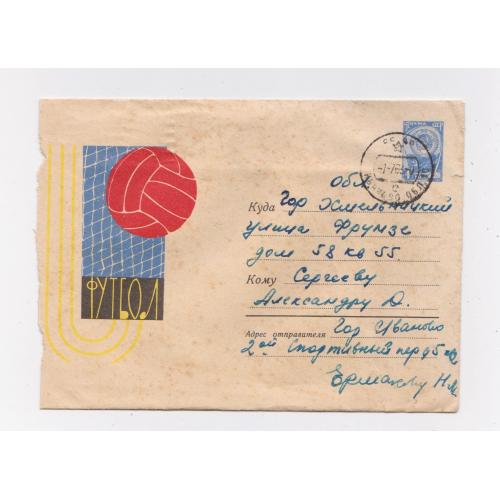 ФУТБОЛ
обл
Куда Гор Хмельницкий
улица Фрунзе
дом 58 кв 55.
Кому Сергееву
Александру О.
Адрес отправителя Гор Иваново
2ой Спортивный пер
Ермакову Н.М.